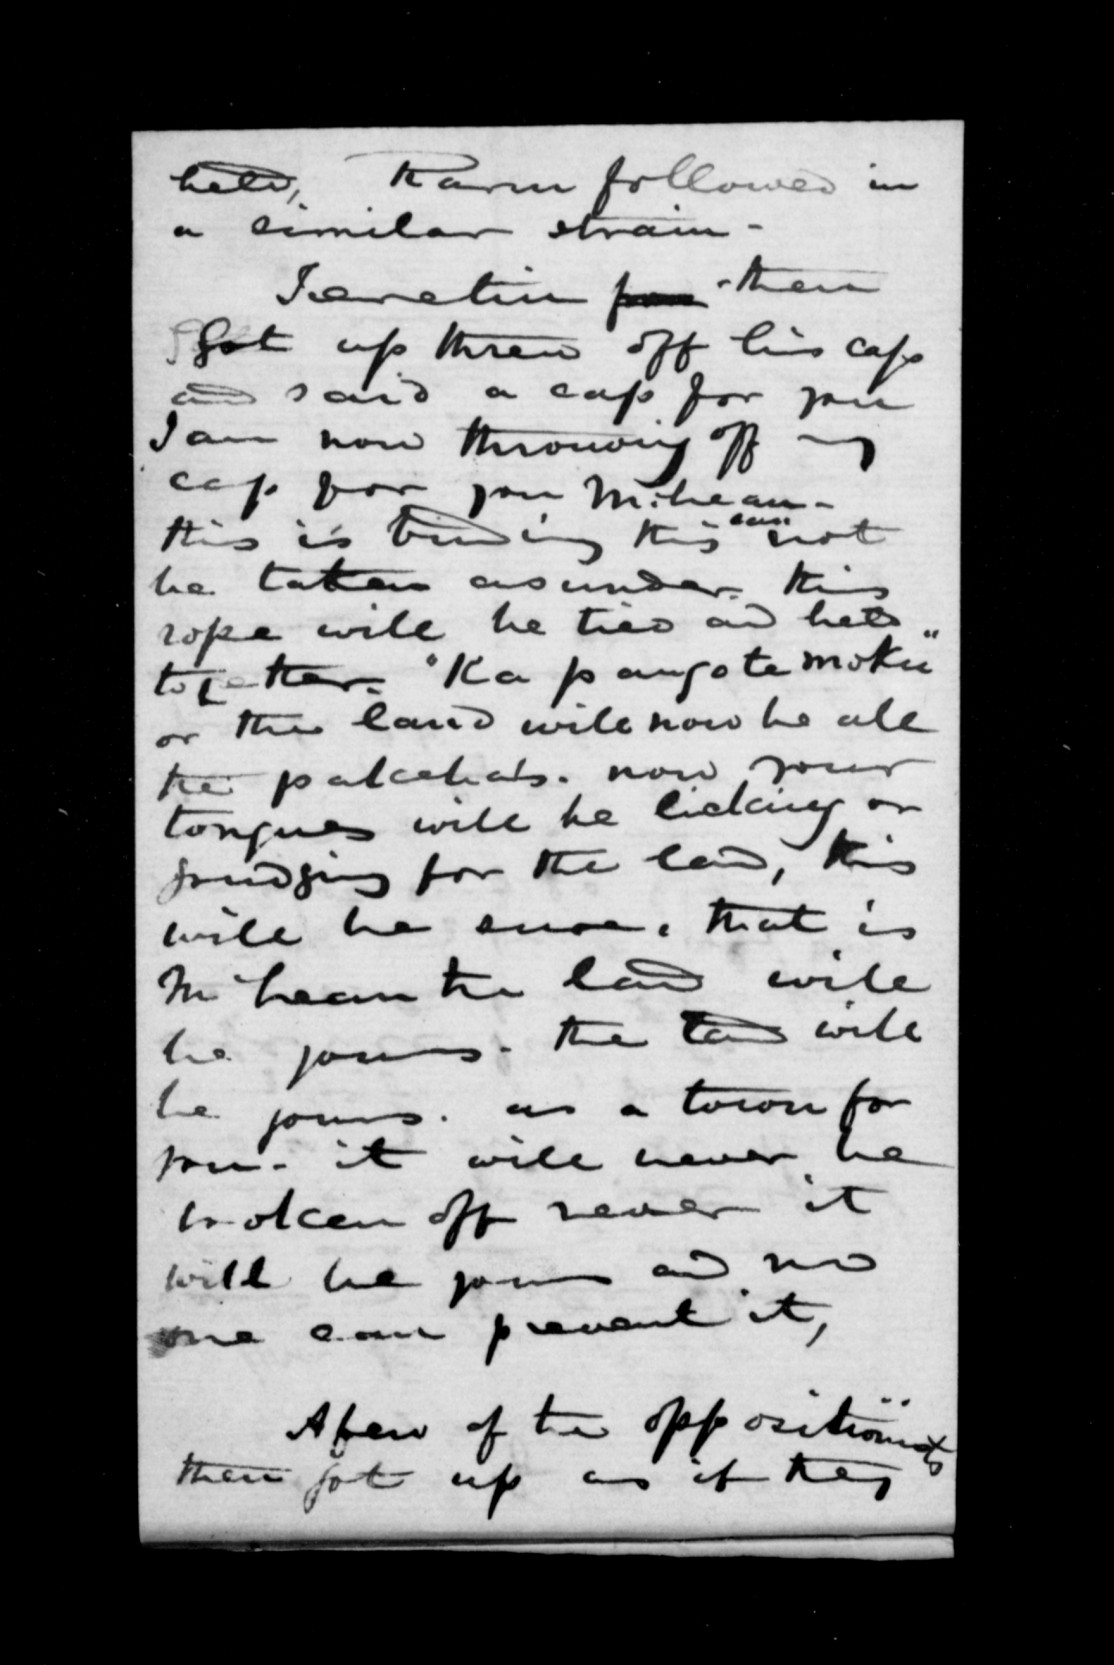 held, Karu followed in
a similar strain -
then
got up threw off his cap
and said a cap for you
I am now throwing off my
cap for you McLean -
this is binding this can not
be taken asunder. this
rope will be tied and held
together. "Ka pangote moku"
or the land will now be all
the pakehas. now your
tongues will be licking or
grudging for the land, this
will be sure. that is
McLean the land will
be yours. the land will
be yours. as a town for
you - it will never be
broken off never it
will be yours and no
one can prevent it,
A few of the oppositionists
then got up as if they